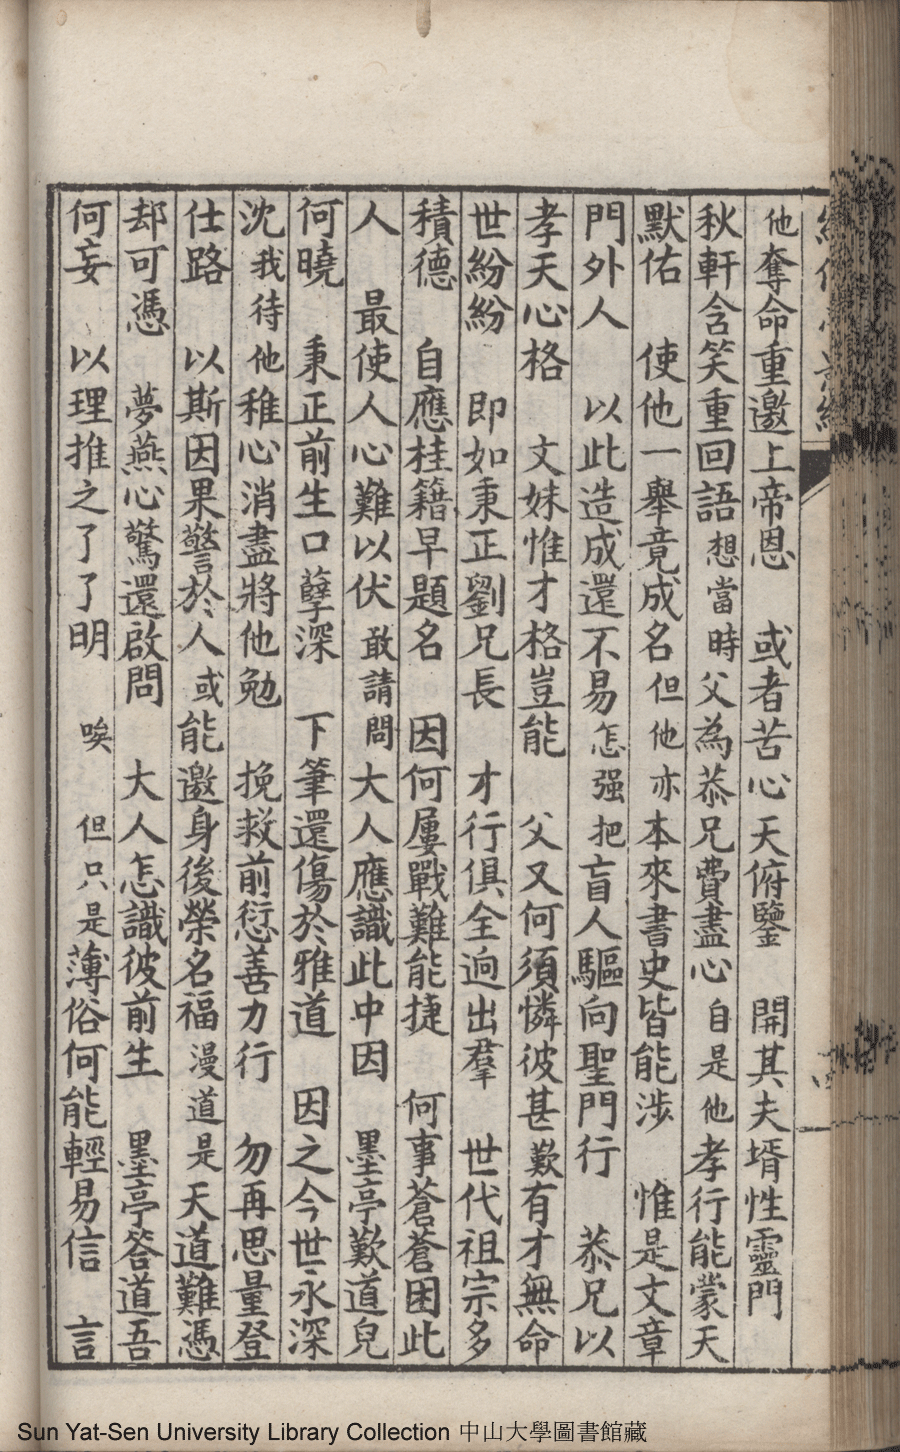 他奪命重邀上帝恩　或者苦心天俯鑒　開其夫壻性靈門
秋軒含笑重回語想當時父為恭兄費盡心自是他孝行能蒙天
默佑　使他一舉竟成名但他亦本來書史皆能涉　惟是文章
門外人　以此造成還不易怎强把盲人驅向聖門行　恭兄以
孝天心格　文妹惟才格豈能　父又何須憐彼甚歎有才無命
世紛紛　即如秉正劉兄長　才行俱全逈出羣　世代祖宗多
積德　自應桂籍早題名　因何屢戰難能捷　何事蒼蒼困此
人　最使人心難以伏敢請問大人應識此中因　墨亭歎道兒
何曉　秉正前生口孽深　下筆還傷於雅道　因之今世永深
沈我待他稚心消盡將他勉　挽救前愆善力行　勿再思量登
仕路　以斯因果警於人或能邀身後榮名福漫道是天道難憑
却可憑　夢燕心驚還啟問　大人怎識彼前生　墨亭答道吾
何妄　以理推之了了明　唉　但只是薄俗何能輕易信　言
Sun Yat-Sen University Library Collection 中山大學圖書館藏